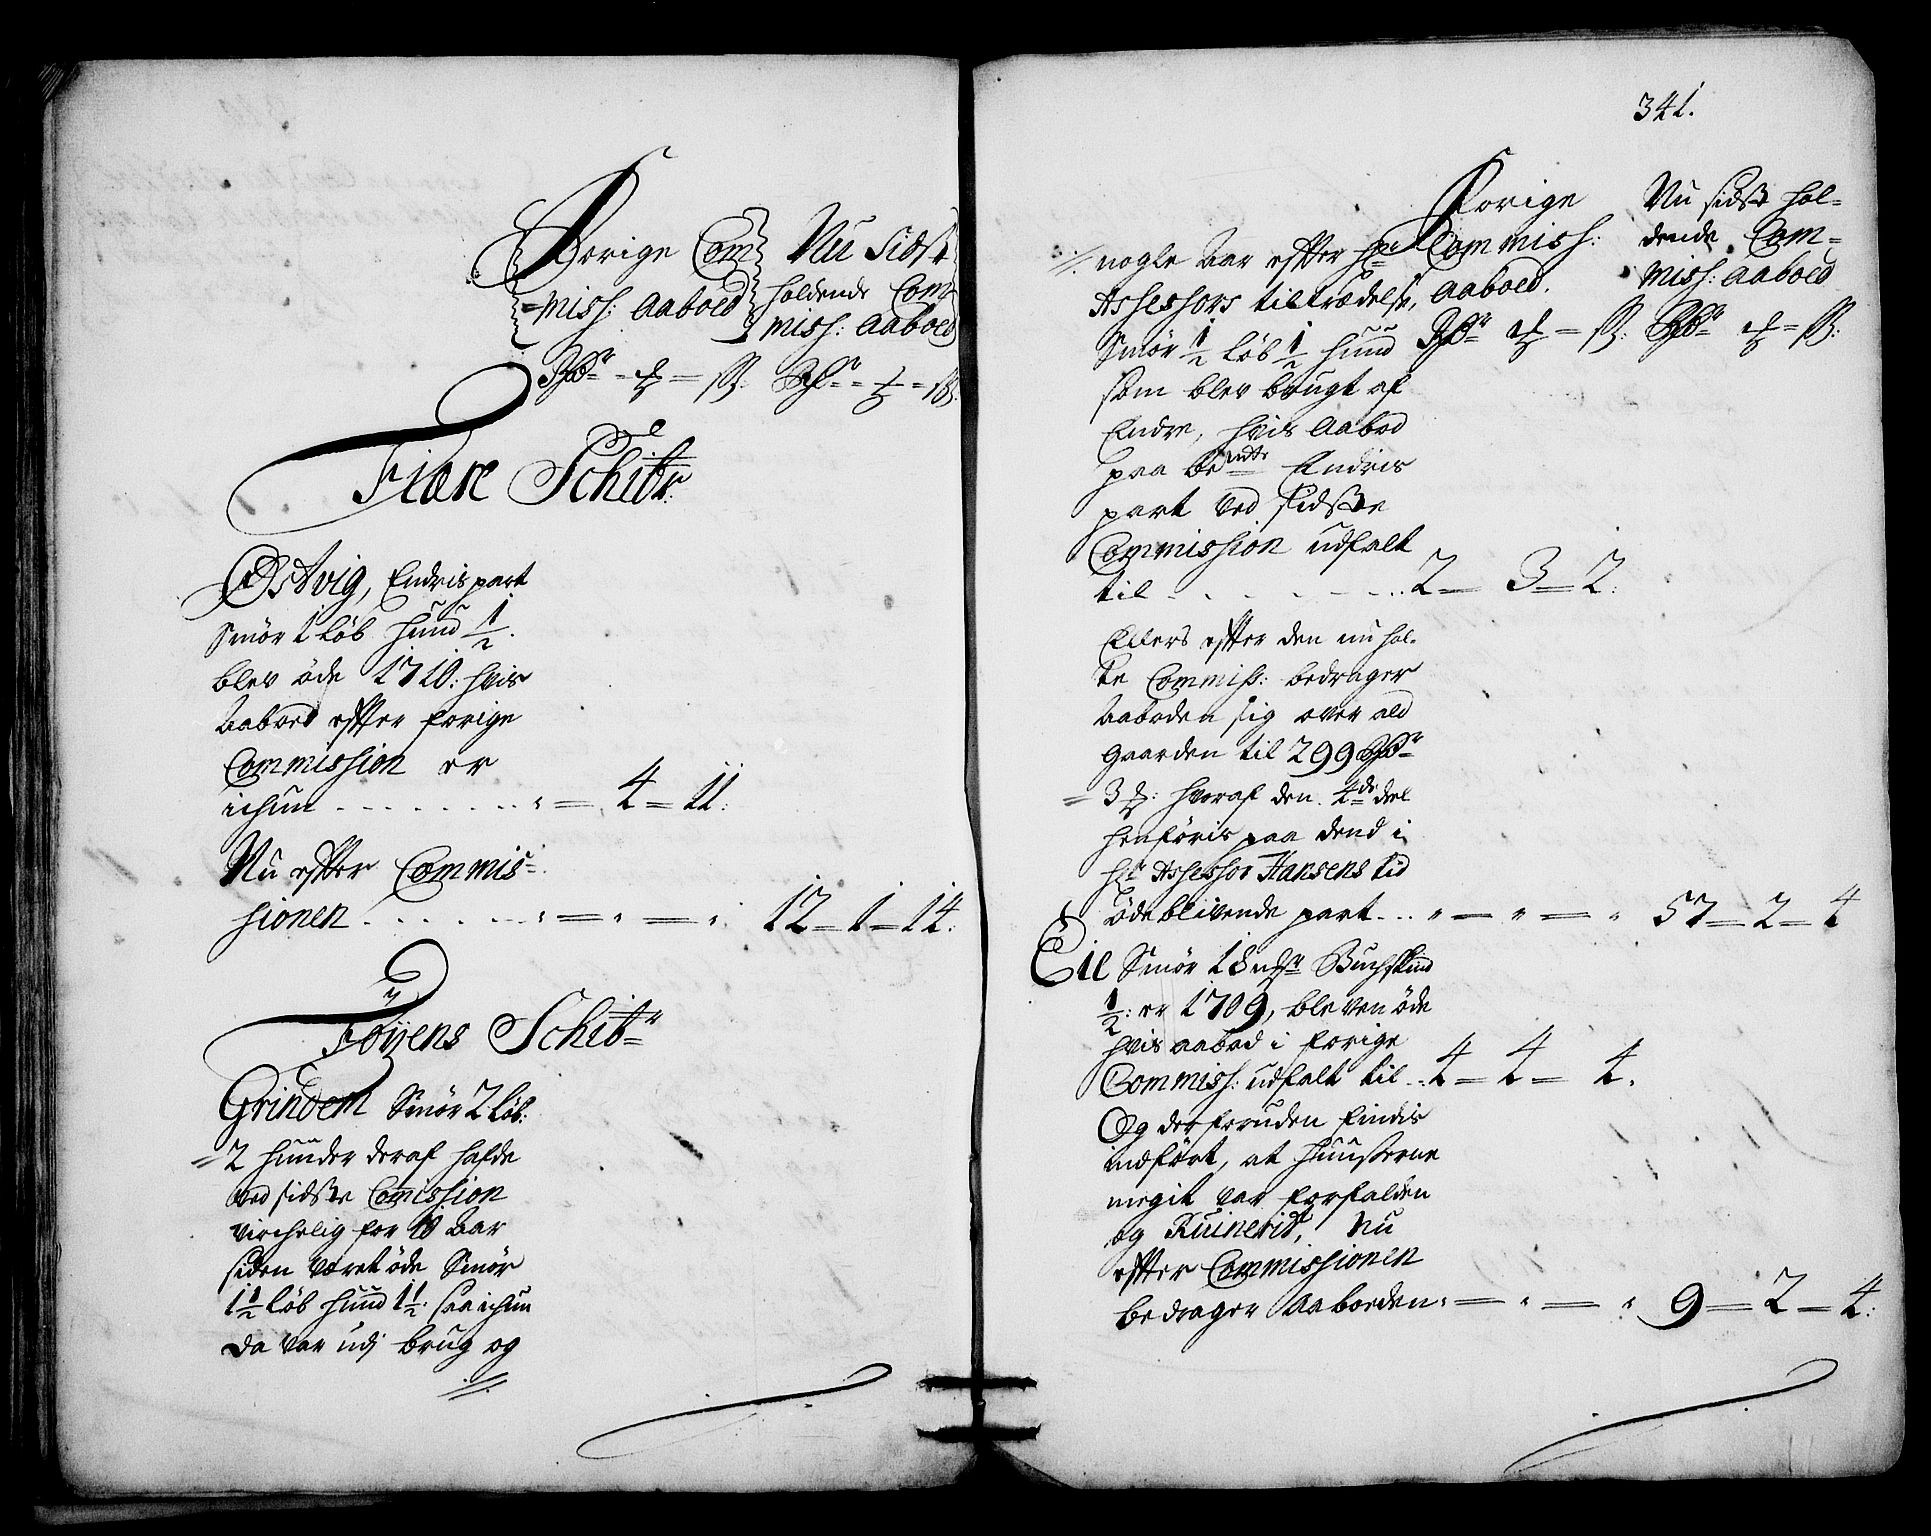 Forige Com
=miss: Aaboed
Nu Sidst
holdende Com=
miss: Aaboed
Rdr = ℳ = ß: Rdr = ℳ = ß:
Fiære Schibr:
Østvig, Endris part
Smør 1 Løb hund 1/2.
blev øde 1710: hvis
Aaboed efter forige
Commission er
ichun - - - - " = 4 = 11:
Nu efter Commis=
sionen - - - - " = " = " 12 = 1 = 14:
Föyens Schibr
Grindem Smør 2 Løb:
=2 hunder deraf hafde
ved sidste Comission
virchelig for 10 Aar
siden været øde Smør
1 1/2 Løb hund 1 1/2. saa ichun
da var udj brug og
341.
Forige
Commiss:
Aaboed.
Nu sidst hol=
dende Com=
miss: Aaboed
Rdr ℳ = ß: Rdr ℳ = ß:
nogle Aar efter Hr
Assessors tiltrædelse,
Smør 1/2 Løb 1/2 hund
som blev brugt af
Endre, hvis Aabod
paa bemte Endris
part ved sidste
Commission udfalt
til - - - - 2 = 3 = 2:
Ellers efter den nu hol=
te Commiss: bedrager
Aaboden sig over ald
Gaarden til 299 Rdr
=3 ℳ: hvoraf den 4de deel
henføris paa dend i
Hr Assessor Hansens tid
øde blivende part - - " = " = " 57 = 2 = 4
Eil Smør 18 mkr Buchskind
1/2: er 1709, bleven øde
hvis aabod i forige
Commiss: udfalt til - 4 = 4 = 4.
Og desforuden findis
indført, at huuserne
megit var forfalden
og Ruinerid, Nu
efter Commissionen
bedrager Aaboeden " = " = " 9 = 2 = 4: